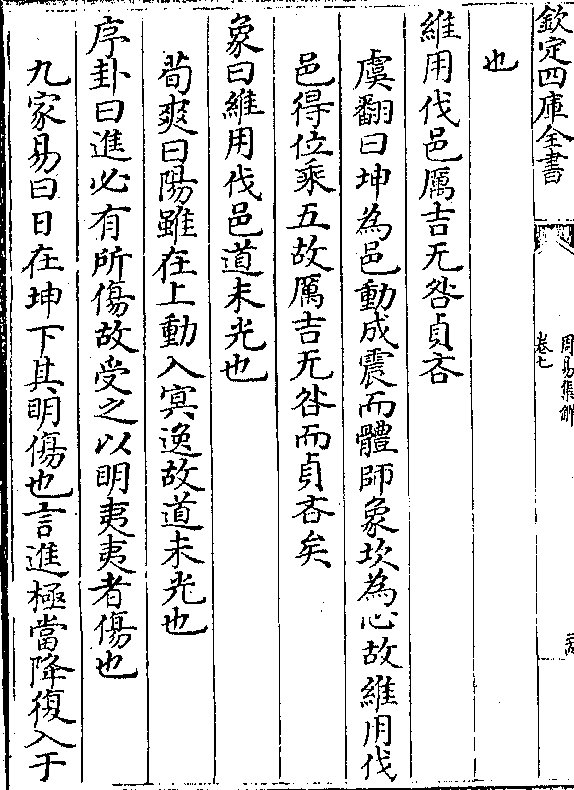 欽定四庫全書
周易集解
卷七
也
維用伐邑厲吉无咎貞吝
虞翻曰坤為邑動成震而體師象坎為心故維用伐
邑得位乘五故厲吉无咎而貞吝矣
象曰維用伐邑道未光也
荀爽曰陽雖在上動入冥逸故道未光也
序卦曰進必有所傷故受之以明夷夷者傷也
九家易曰日在坤下其明傷也言進極當降復入于